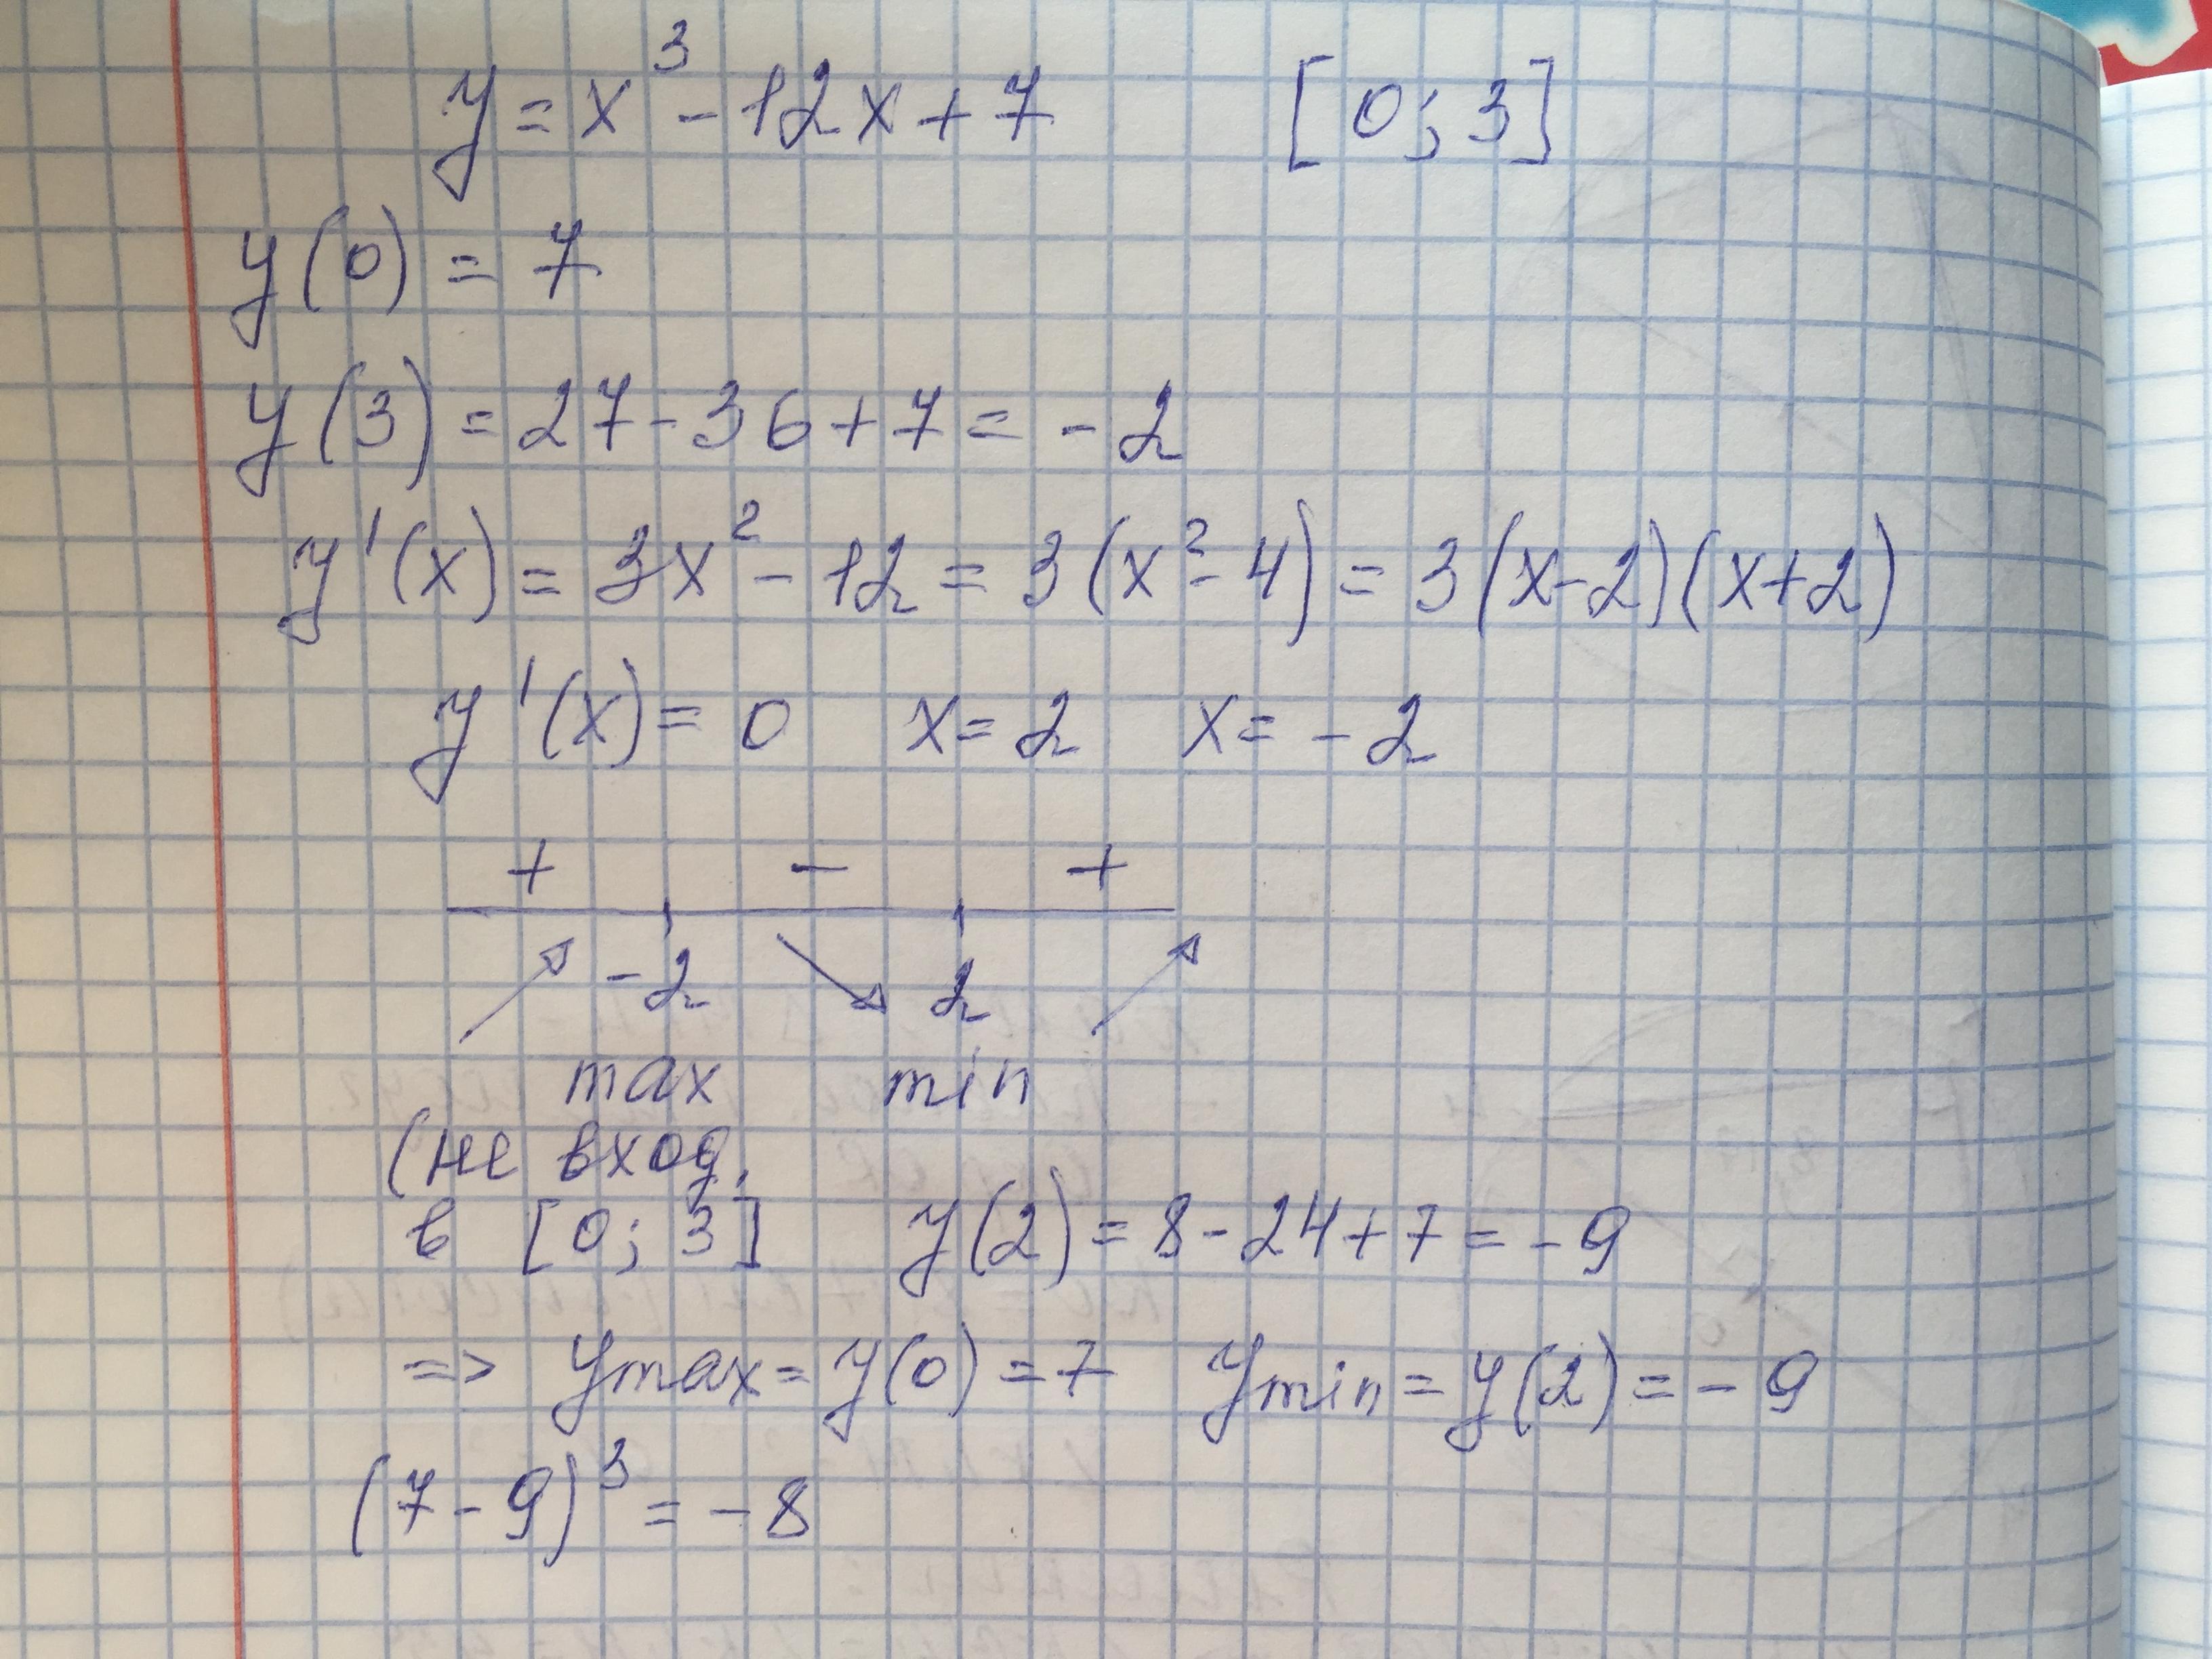 y = x³ - 12x + 7 [0; 3]
y(0) = 7
y(3) = 27 - 36 + 7 = - 2
y'(x) = 3x² - 12 = 3(x² - 4) = 3(x-2)(x+2)
y'(x) = 0 x = 2 x = - 2
+ - +
-2 2
max min
(не вход.
в [0; 3] y(2) = 8 - 24 + 7 = - 9
=> ymax = y(0) = 7 ymin = y(2) = - 9
(7 - 9)³ = - 8